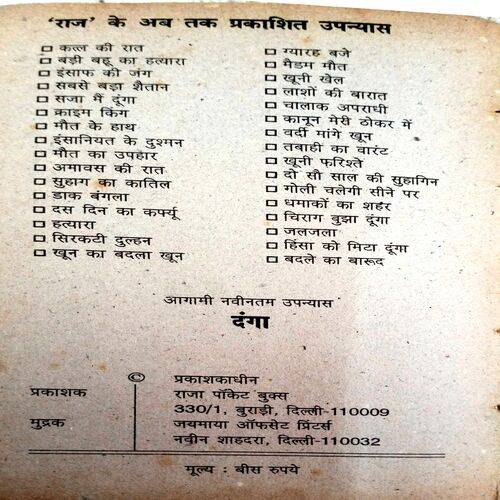 'राज' के अब तक प्रकाशित उपन्यास
कत्ल की रात
बड़ी बहू का हत्यारा
इंसाफ की जंग
सबसे बड़ा शैतान
सजा मैं दूंगा
क्राइम किंग
मौत के हाथ
इंसानियत के दुश्मन
मौत का उपहार
अमावस की रात
सुहाग का कातिल
डाक बंगला
दस दिन का कर्फ्यू
हत्यारा
सिरकटी दुल्हन
खून का बदला खून
ग्यारह बजे
मैडम मौत
खूनी खेल
लाशों की बारात
चालाक अपराधी
कानून मेरी ठोकर में
वर्दी मांगे खून
तबाही का वारंट
खूनी फरिश्ते
दो सौ साल की सुहागिन
गोली चलेगी सीने पर
धमाकों का शहर
चिराग बुझा दूंगा
जलजला
हिंसा को मिटा दूंगा
बदले का बारूद
आगामी नवीनतम उपन्यास
दंगा
© प्रकाशकाधीन
प्रकाशक राजा पॉकेट बुक्स
330/1, बुराड़ी, दिल्ली-110009
मुद्रक जयमाया ऑफसेट प्रिंटर्स
नवीन शाहदरा, दिल्ली-110032
मूल्य : बीस रुपये